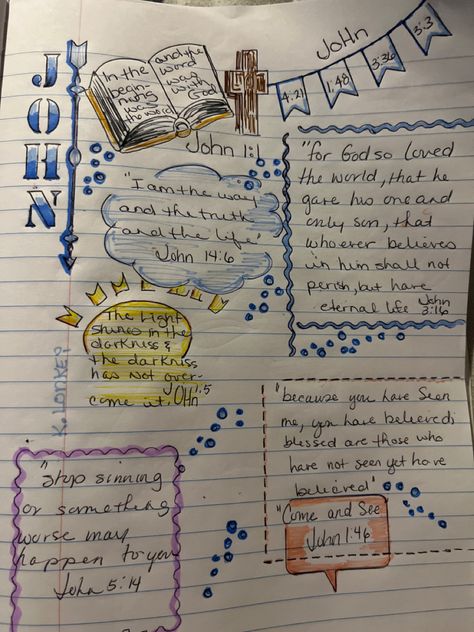 JOHN
In the
begin
ning
was
the word
and the
word
was
with
God
John 1:1
JOHN
4:21
1:48
3:36
3:3
"I am the way
and the truth
and the life"
John 14:6
"for God so loved
the world, that he
gave his one and
only son, that
whoever believes
in him shall not
perish, but have
eternal life John
3:16
The Light
shines in the
darkniss &
the darkniss
has not over-
come it. JOHn 1:5
"because you have seen
me, you have believed;
blessed are those who
have not seen yet have
believed"
"Come and See
John 1:46
"Stop sinning
or something
worse may
happen to you
John 5:14